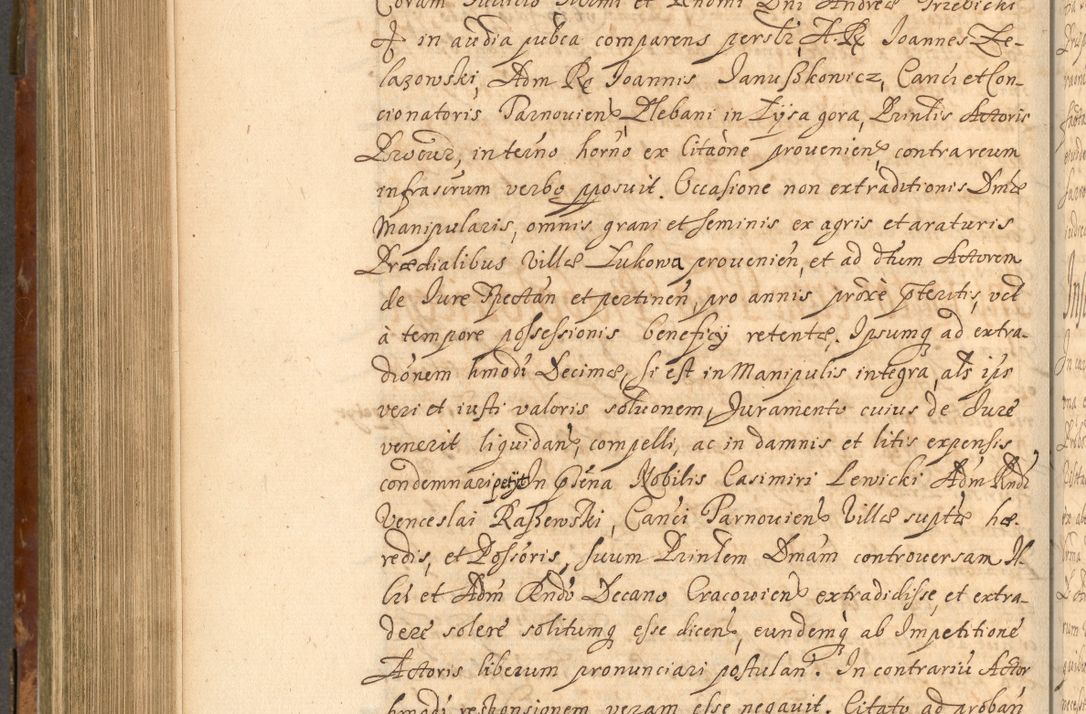 Coram Iudicio Illmi et Rndmi Dni Andreæ Trzebicki
in audia pubca comparens persltr A. R. Ioannes Ze-
lazowski, Adm R. Ioannis Ianuszkowicz, Canci et Con-
cionatoris Tarnovien, Plebani in Łysa gora, Prinlis Actoris
Procur, in termo horno ex Citaone provenien, contra reum
infrascrum verbo pposuit. Occasione non extraditionis Dmæ
Manipularis, omnis grani et seminis ex agris et araturis
Prædialibus Villæ Lukowa provenien, et ad dtum Actorem
de Iure Spectan et pertinen, pro annis proxe pteritis, vel
à tempore possessionis beneficy retentæ. Ipsumq ad extra-
dionem hmodi Decimæ, si est in Manipulis integra, als ips
veri et iusti valoris soluonem, Iuramento cuius de Iure
venerit liquidan, compelli, ac in damnis et litis expensis
condemnari petijt In pñena Nobilis Casimiri Lewicki Adm Rndi
Venceslai Raszewski, Canci Tarnovien Villæ suptæ hæ-
redis, et Possoris, suum Prinlem Dmam controversam Il-
lri et Adm Rndo Decano Cracovien extradidisse, et extra-
dere solere solitumq esse dicen, eundemq ab Impetitione
Actoris liberum pronunciari postulan. In contrariu Actor
hmodi responsionem veram esse negavit. Citato ad proban